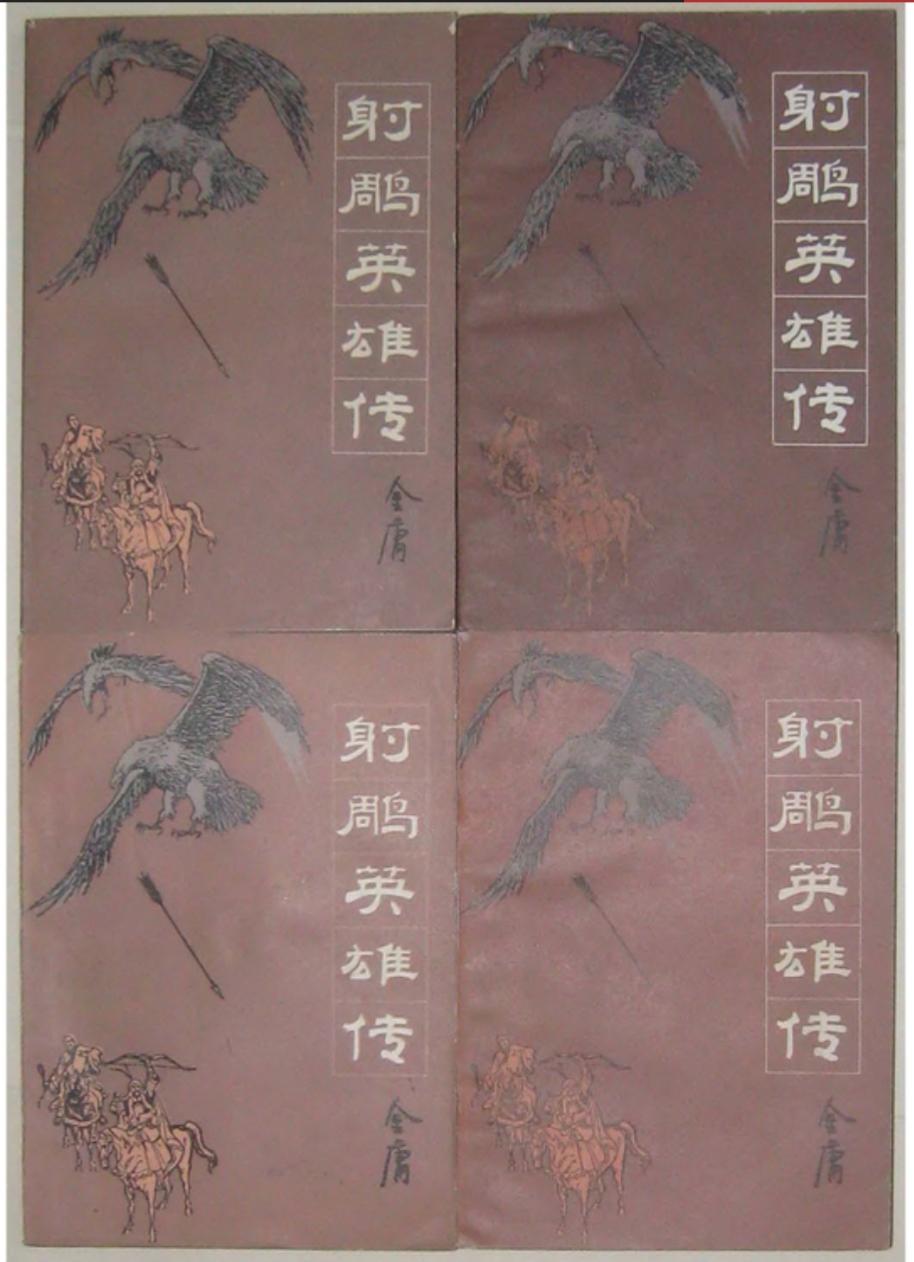 射雕英雄传
金庸
射雕英雄传
金庸
射雕英雄传
金庸
射雕英雄传
金庸